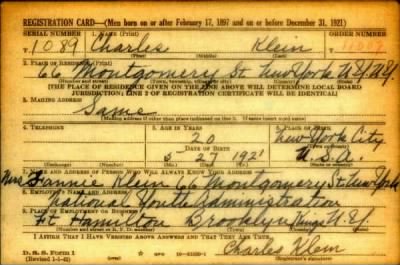 REGISTRATION CARD—(Men born on or after February 17, 1897 and on or before December 31, 1921)
SERIAL NUMBER 1. NAME (Print) ORDER NUMBER
T1089 Charles Klein
(First) (Middle) (Last)
2. PLACE OF RESIDENCE (Print)
66 Montgomery St. New York N.Y. N.Y.
(Number and street) (Town, township, village, or city) (County) (State)
[THE PLACE OF RESIDENCE GIVEN ON THE LINE ABOVE WILL DETERMINE LOCAL BOARD
JURISDICTION; LINE 2 OF REGISTRATION CERTIFICATE WILL BE IDENTICAL]
3. MAILING ADDRESS
Same
[Mailing address if other than place indicated on line 2. If same insert word same]
4. TELEPHONE 5. AGE IN YEARS 6. PLACE OF BIRTH
20 New York City
DATE OF BIRTH (Town or county)
5 27 1921 U.S.A.
(Exchange) (Number) (Mo.) (Day) (Yr.) (State or country)
7. NAME AND ADDRESS OF PERSON WHO WILL ALWAYS KNOW YOUR ADDRESS
Mrs Fannie Klein 66 Montgomery St. New York
8. EMPLOYER'S NAME AND ADDRESS
National Youth Administration
9. PLACE OF EMPLOYMENT OR BUSINESS
Ft. Hamilton Brooklyn Kings N.Y.
(Number and street or R. F. D. number) (Town) (County) (State)
I AFFIRM THAT I HAVE VERIFIED ABOVE ANSWERS AND THAT THEY ARE TRUE.
Charles Klein
D. S. S. Form 1
(Revised 1-5-42) (over) GPO (Registrant's signature)